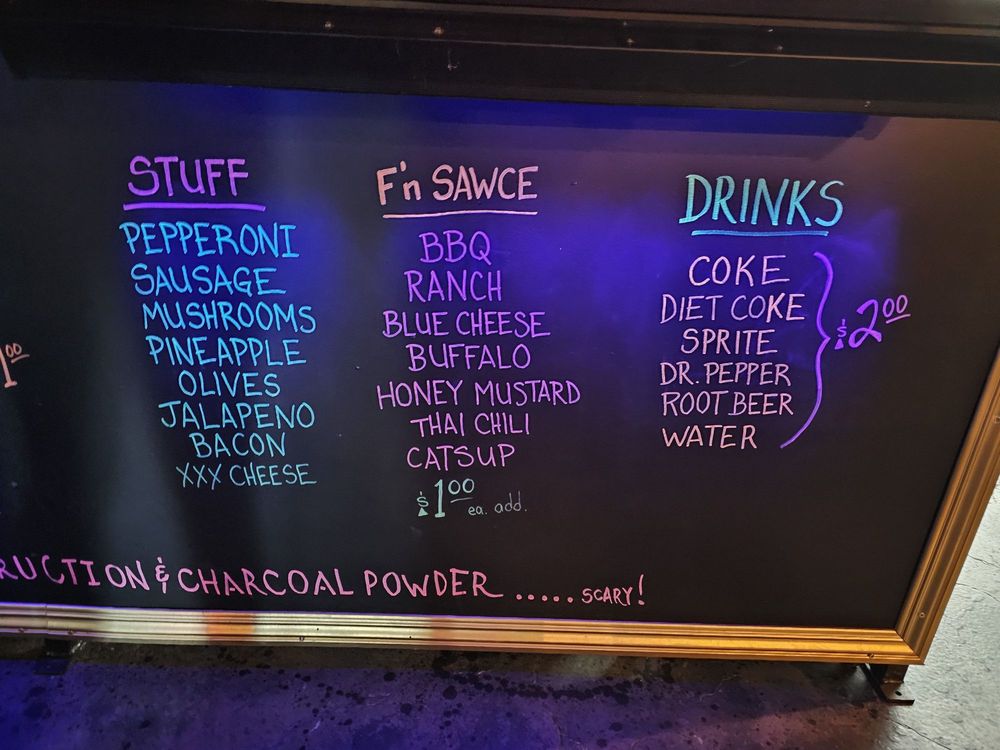 STUFF
PEPPERONI
SAUSAGE
MUSHROOMS
PINEAPPLE
OLIVES
JALAPENO
BACON
XXX CHEESE
F'n SAWCE
BBQ
RANCH
BLUE CHEESE
BUFFALO
HONEY MUSTARD
THAI CHILI
CATSUP
$1.00 ea. add.
DRINKS
COKE
DIET COKE
SPRITE
DR. PEPPER
ROOT BEER
WATER
$2.00
& CHARCOAL POWDER ..... SCARY!